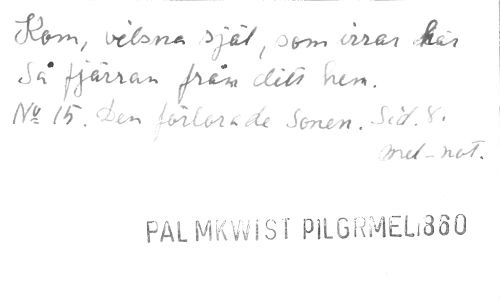 Kom, vilsna själ, som irrar här
Så fjärran från ditt hem.
No 15. Den förlorade Sonen. Sid. 8.
mel-not.
PALMKWIST PILGRMEL1860